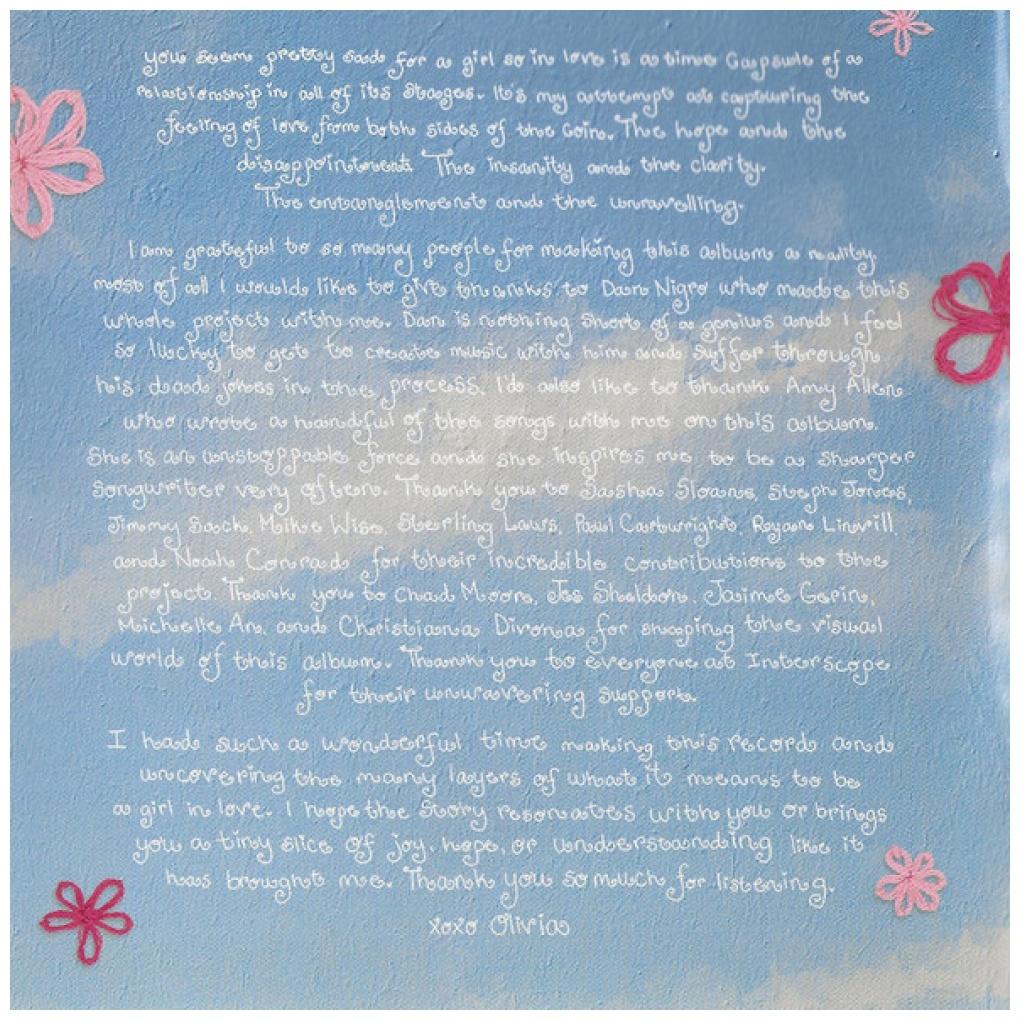 you seem pretty sad for a girl so in love is a time capsule of a
relationship in all of its stages. It's my attempt at capturing the
feeling of love from both sides of the coin. The hope and the
disappointment. The insanity and the clarity.
The entanglement and the unravelling.
I am grateful to so many people for making this album a reality.
most of all I would like to give thanks to Dan Nigro who made this
whole project with me. Dan is nothing short of a genius and I feel
so lucky to get to create music with him and suffer through
his dad jokes in the process. I'd also like to thank Amy Allen
who wrote a handful of the songs with me on this album.
She is an unstoppable force and she inspires me to be a sharper
songwriter very often. Thank you to Sasha Sloane, Steph Jones,
Jimmy Sach, Mike Wise, Sterling Laws, Paul Cartwright, Ryan Linvill,
and Noah Conrad for their incredible contributions to the
project. Thank you to Chad Moore, Jes Sheldon, Jaime Gerin,
Michelle An, and Christiana Divona for shaping the visual
world of this album. Thank you to everyone at Interscope
for their unwavering support.
I had such a wonderful time making this record and
uncovering the many layers of what it means to be
a girl in love. I hope the story resonates with you or brings
you a tiny slice of joy, hope, or understanding like it
has brought me. Thank you so much for listening.
xoxo Olivia